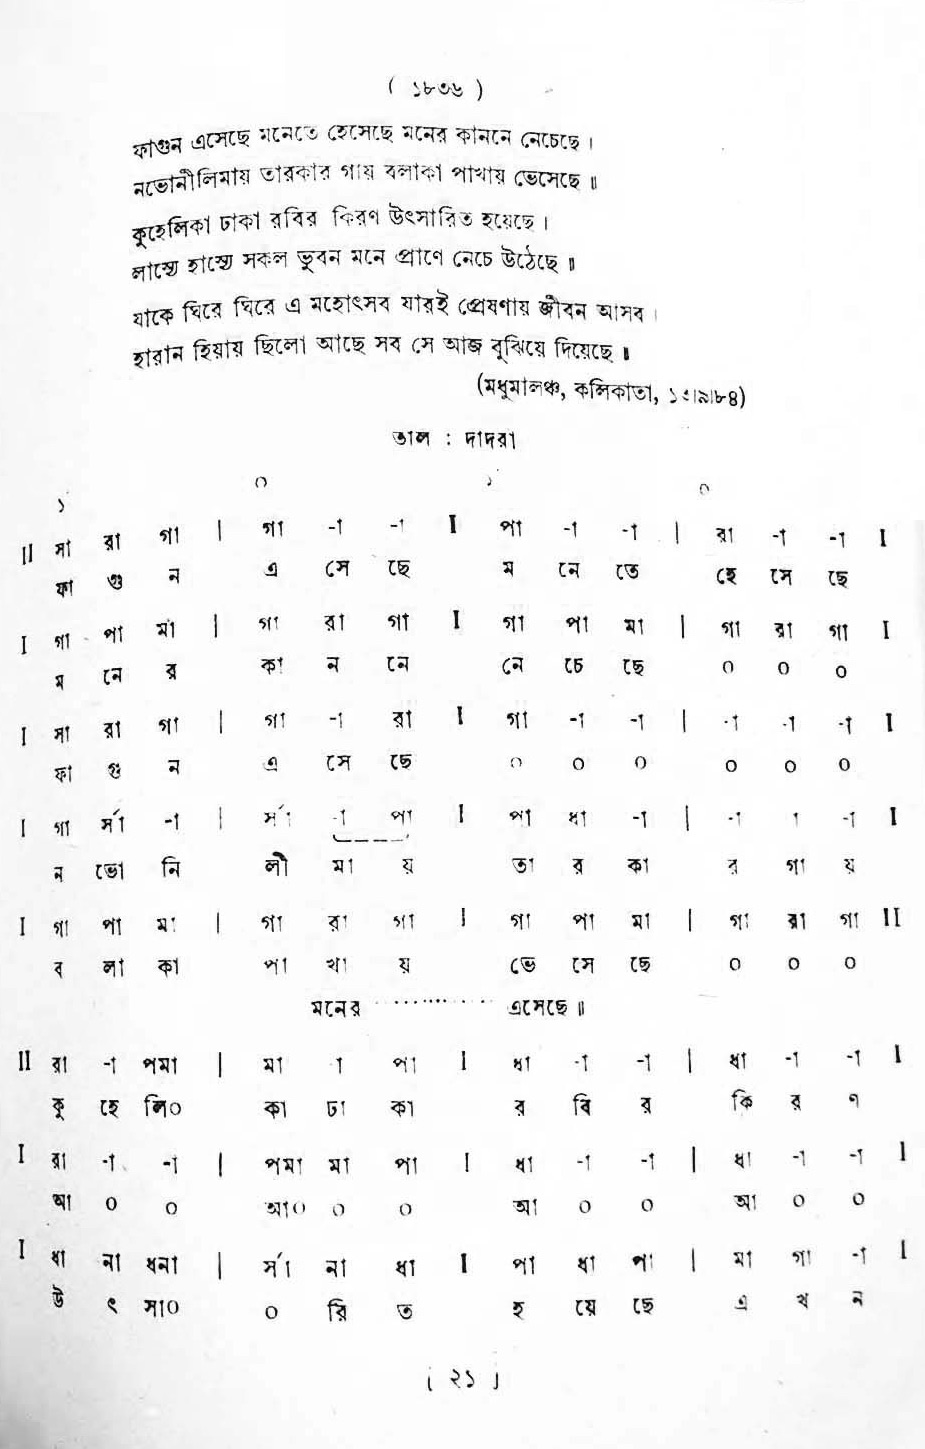 ( ১৮৩৬ )
ফাগুন এসেছে মনেতে হেসেছে মনের কাননে নেচেছে ।
নভোনীলিমায় তারকার গায় বলাকা পাখায় ভেসেছে ॥
কুহেলিকা ঢাকা রবির কিরণ উৎসারিত হয়েছে ।
লাস্যে হাস্যে সকল ভুবন মনে প্রাণে নেচে উঠেছে ॥
যাকে ঘিরে ঘিরে এ মহোৎসব যারই প্রেষণায় জীবন আসব ।
হারান হিয়ায় ছিলো আছে সব সে আজ বুঝিয়ে দিয়েছে ॥
(মধুমালঞ্চ, কলিকাতা,
তাল : দাদরা
১ ০ ১ ০
II সা রা গা | গা -া -া I পা -া -া | রা -া -া I
ফা গু ন এ সে ছে ম নে তে হে সে ছে
I গা পা মা | গা রা গা I গা পা মা | গা রা গা I
ম নে র কা ন নে নে চে ছে ০ ০ ০
I সা রা গা | গা -া রা I গা -া -া | -া -া -া I
ফা গু ন এ সে ছে ০ ০ ০ ০ ০ ০
I গা র্সা -া | র্সা -া পা I পা ধা -া | -া া -া I
ন ভো নি লী মা য় তা র কা র গা য়
I গা পা মা | গা রা গা I গা পা মা | গা রা গা II
ব লা কা পা খা য় ভে সে ছে ০ ০ ০
মনের ............... এসেছে ॥
II রা -া পমা | মা া পা I ধা -া -া | ধা -া -া I
কু হে লি০ কা ঢা কা র বি র কি র ণ
I রা -া -া | পমা মা পা I ধা -া -া | ধা -া -া I
আ ০ ০ আ০ ০ ০ আ ০ ০ আ ০ ০
I ধা না ধনা | র্সা না ধা I পা ধা পা | মা গা -া I
উ ৎ সা০ ০ রি ত হ য়ে ছে এ খ ন
( ২১ )